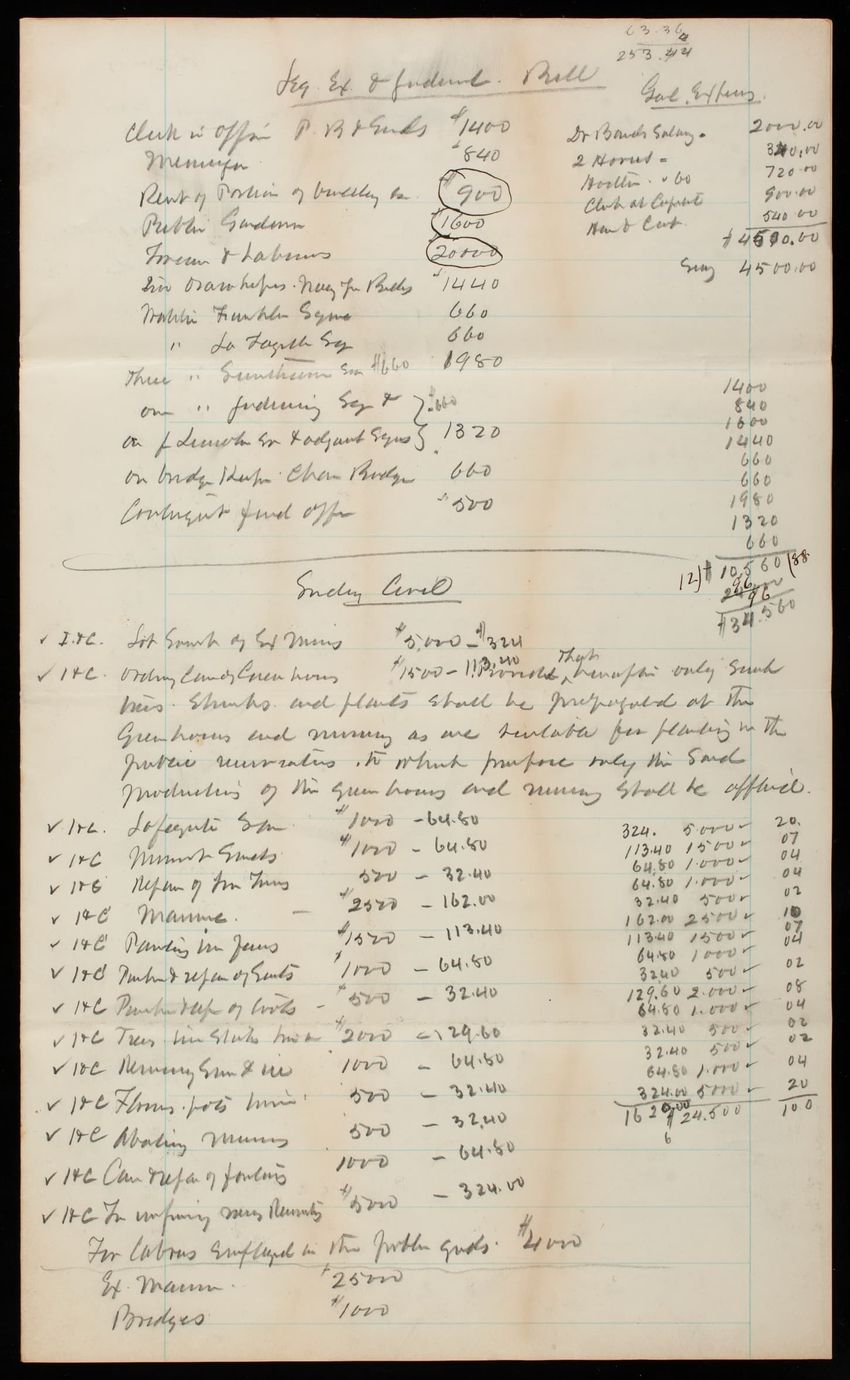 63.36
253.44
Leg. Ex. & Judicial. Bill
Gol. Expens.
Clerk in Office P. B & Grds $1400
Messenger $840
Rent of Portion of dwelling $900
Public Gardener $1600
Foreman & Laborers $20000
Two Draw keepers. Navy Yn Bridges $1440
Watchn Franklin Square 660
" La Fayette Sqr 660
Three " Smithsonian $660 1980
one " Judiciary Sqr & } $660
on f Lincoln Sqr & adjacent Squares } 1320
on bridge Keeper Chain Bridge 660
Contingent fund office $500
Dr Bonds Salary 2000.00
2 Horses 340.00
720.00
Clerk at Capitol 900.00
Man & Cart 540 00
$4500.00
Say 4500.00
1400
840
1600
1440
660
660
1980
1320
660
12) $10,560 (88
96
96
$34,560
Sundry Civil
✓ I & C. South of Ex Mans $5,000 - $324
✓ I & C. Ordinary Care of Greenhouses $1500 - 113.40 Provided, That hereafter only such
trees. Shrubs. and plants shall be propagated at the
Greenhouses and nursery as are suitable for planting in the
public reservations. to which purpose only the said
productions of the Greenhouses and nursery shall be applied.
✓ I & C. Lafayette Sqr $1000 - 64.80
✓ I & C $1000 - 64.80
✓ I & C Repair of Iron Fences 500 - 32.40
✓ I & C Manure. - $2500 - 162.00
✓ I & C Painting Iron fences $1500 - 113.40
✓ I & C Purchase & repair of Seats $1000 - 64.80
✓ I & C Purchase & rep of tools - $500 - 32.40
✓ I & C Trees tree Stakes $2000 - 129.60
✓ I & C Removing Snow & ice 1000 - 64.80
✓ I & C Flower pots twine 500 - 32.40
✓ I & C Abating nuisances 500 - 32.40
✓ I & C Care & repair of fountains 1000 - 64.80
✓ I & C For improving various Reservations $5000 - 324.00
For labors employed in the public grds. $4000
Ex. Mansion. $25000
Bridges $1000
324. 5000 ✓ 20.
113.40 1500 ✓ 07
64.80 1.000 ✓ 04
64.80 1.000 ✓ 04
32.40 500 ✓ 02
162.00 2500 ✓ 10
113.40 1500 ✓ 07
64.80 1000 ✓ 04
32.40 500 ✓ 02
129.60 2.000 ✓ 08
64.80 1.000 ✓ 04
32.40 500 ✓ 02
32.40 500 ✓ 02
64.80 1.000 ✓ 04
324.00 5000 ✓ 20
1620.00 $24.500 100
6